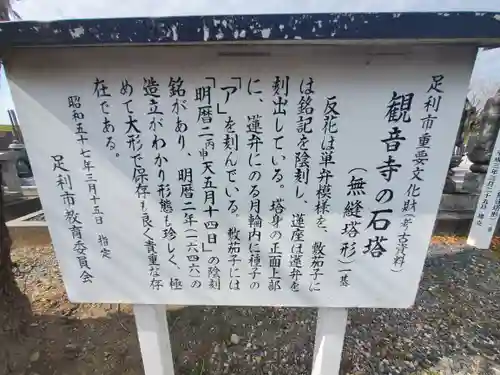 足利市重要文化財(考古資料)
観音寺の石塔
(無縫塔形)一基
反花は単弁模様を、敷茄子に
は銘記を陰刻し、蓮座は蓮弁を
刻出している。塔身の正面上部
に、蓮弁にのる月輪内に種子の
「ア」を刻んでいる。敷茄子には
「明暦二丙申天五月十四日」の陰刻
銘があり、明暦二年(一六四六)の
造立がわかり形態も珍しく、極
めて大形で保存も良く貴重な存
在である。
昭和五十七年三月十五日 指定
足利市教育委員会